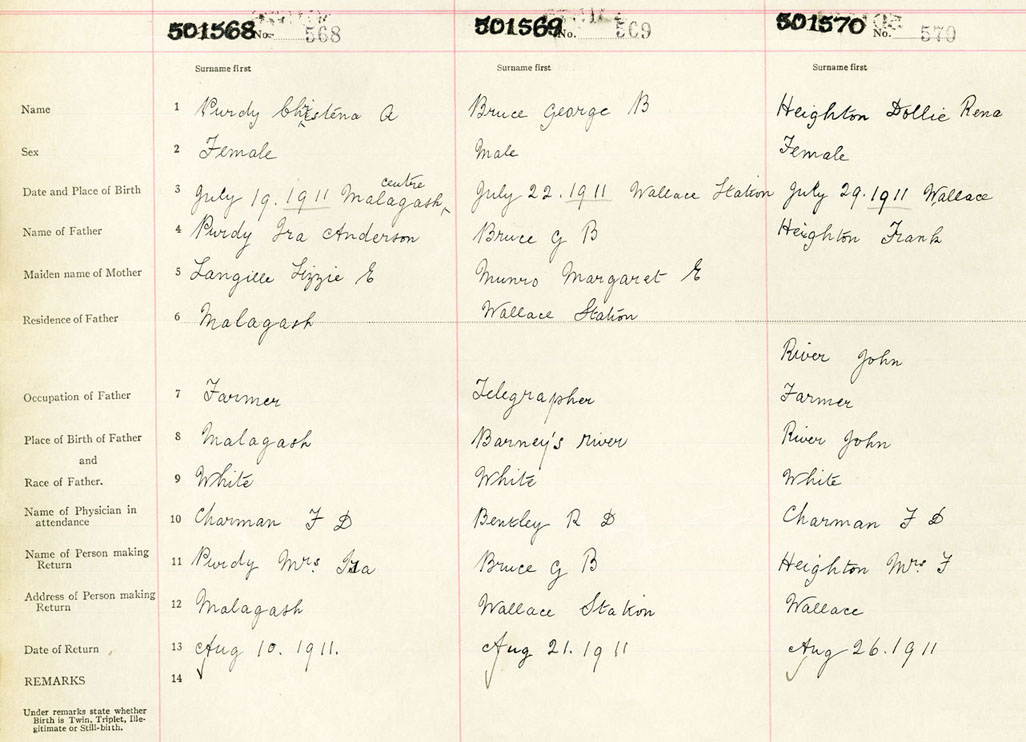 501568 No. 568 501569 No. 569 501570 No. 570
Surname first Surname first Surname first
Name 1 Purdy Christena A Bruce George B Heighton Dollie Rena
Sex 2 Female Male Female
centre
Date and Place of Birth 3 July 19. 1911 Malagash July 22. 1911 Wallace Station July 29. 1911 Wallace
Name of Father 4 Purdy Ira Anderson Bruce G B Heighton Frank
Maiden name of Mother 5 Langille Lizzie E Munro Margaret E
Residence of Father 6 Malagash Wallace Station
River John
Occupation of Father 7 Farmer Telegrapher Farmer
Place of Birth of Father 8 Malagash Barney's River River John
and
Race of Father. 9 White White White
Name of Physician in
attendance 10 Charman F D Bentley R D Charman F D
Name of Person making
Return 11 Purdy Mrs Ira Bruce G B Heighton Mrs F
Address of Person making
Return 12 Malagash Wallace Station Wallace
Date of Return 13 Aug 10. 1911. Aug 21. 1911 Aug 26. 1911
REMARKS 14
Under remarks state whether
Birth is Twin, Triplet, Ille-
gitimate or Still-birth.